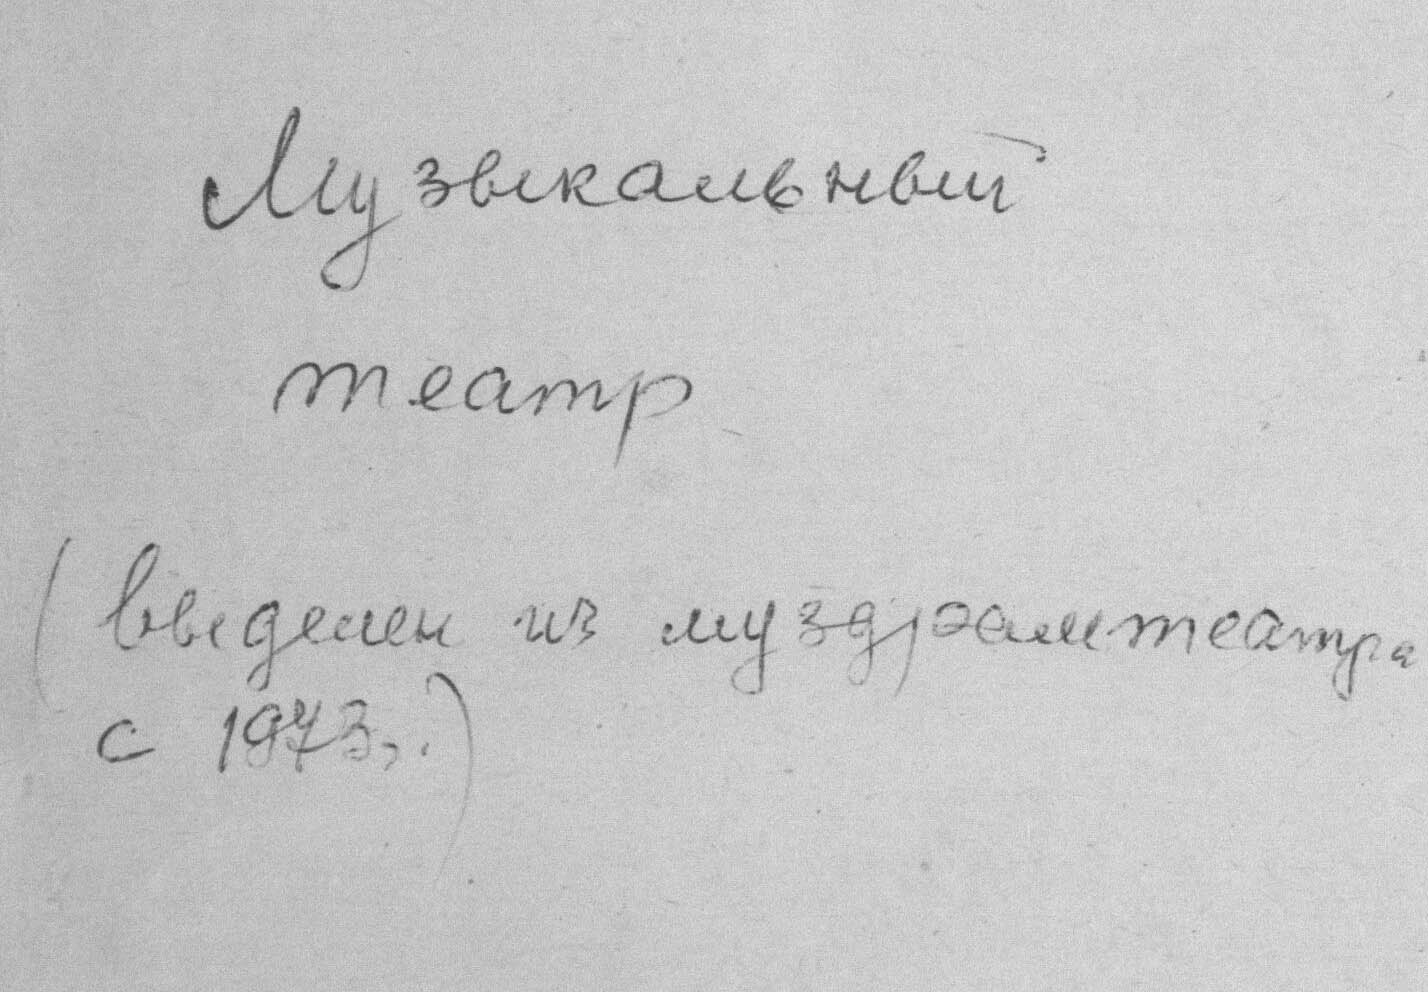 Музыкальный
театр
(Выделен из муздрамтеатра
с 1973 г.)